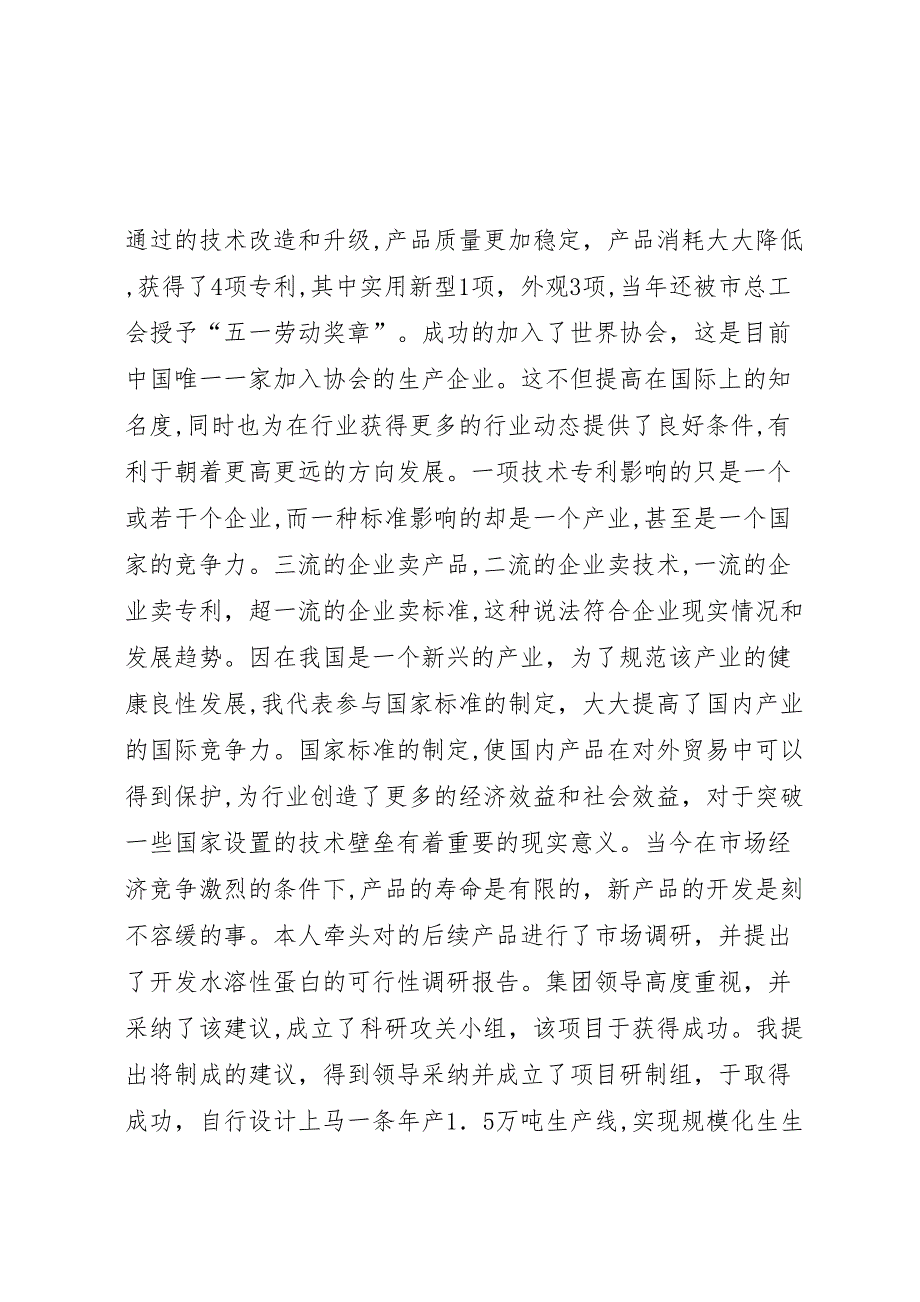 通过的技术改造和升级,产品质量更加稳定，产品消耗大大降低
,获得了4项专利,其中实用新型1项，外观3项,当年还被市总工
会授予“五一劳动奖章”。成功的加入了世界协会，这是目前
中国唯一一家加入协会的生产企业。这不但提高在国际上的知
名度,同时也为在行业获得更多的行业动态提供了良好条件,有
利于朝着更高更远的方向发展。一项技术专利影响的只是一个
或若干个企业,而一种标准影响的却是一个产业,甚至是一个国
家的竞争力。三流的企业卖产品,二流的企业卖技术,一流的企
业卖专利，超一流的企业卖标准,这种说法符合企业现实情况和
发展趋势。因在我国是一个新兴的产业，为了规范该产业的健
康良性发展,我代表参与国家标准的制定，大大提高了国内产业
的国际竞争力。国家标准的制定,使国内产品在对外贸易中可以
得到保护,为行业创造了更多的经济效益和社会效益，对于突破
一些国家设置的技术壁垒有着重要的现实意义。当今在市场经
济竞争激烈的条件下,产品的寿命是有限的，新产品的开发是刻
不容缓的事。本人牵头对的后续产品进行了市场调研，并提出
了开发水溶性蛋白的可行性调研报告。集团领导高度重视，并
采纳了该建议,成立了科研攻关小组，该项目于获得成功。我提
出将制成的建议，得到领导采纳并成立了项目研制组，于取得
成功，自行设计上马一条年产1．5万吨生产线,实现规模化生生